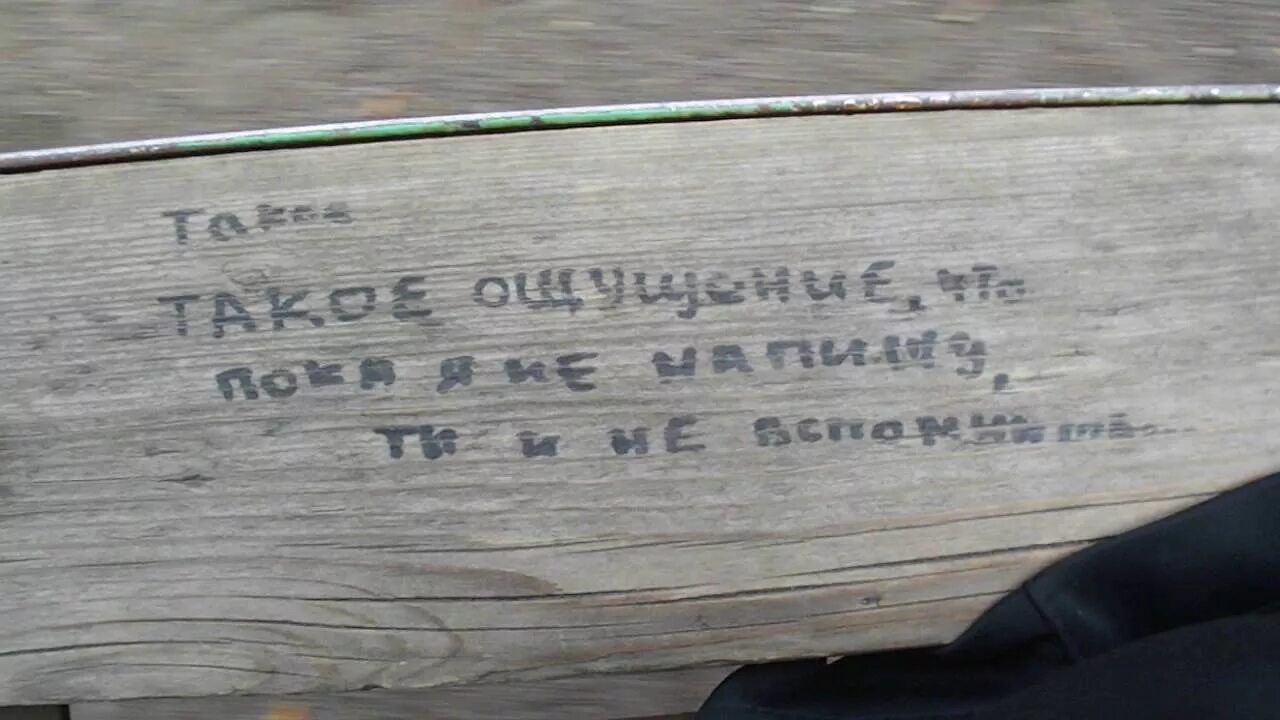 Такое
ТАКОЕ ОЩУЩЕНИЕ, что
пока я не напишу,
ти и не вспомнишь...